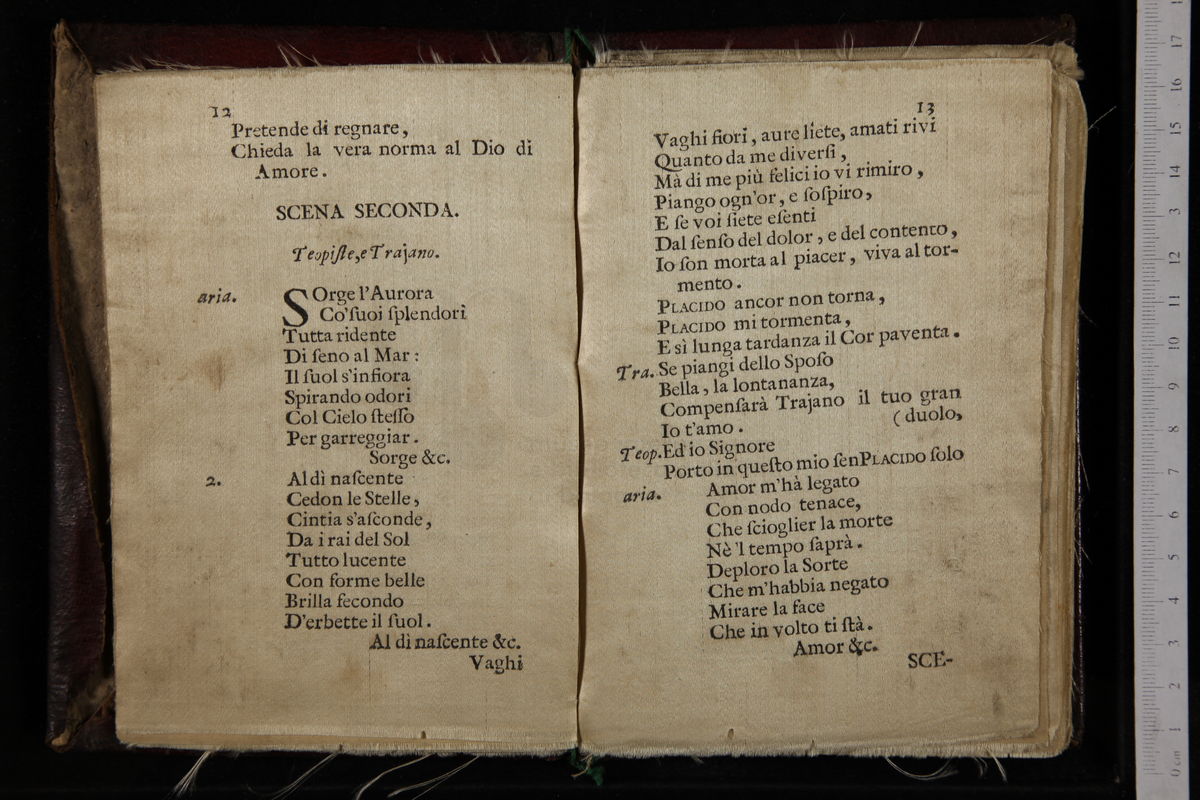 12
Pretende di regnare,
Chieda la vera norma al Dio di
Amore.
SCENA SECONDA.
Teopiſte, e Trajano.
aria. SOrge l'Aurora
Co'ſuoi ſplendori
Tutta ridente
Di ſeno al Mar:
Il ſuol s'infiora
Spirando odori
Col Cielo ſteſſo
Per garreggiar.
Sorge &c.
2. Al dì naſcente
Cedon le Stelle,
Cintia s'aſconde,
Da i rai del Sol
Tutto lucente
Con forme belle
Brilla fecondo
D'erbette il ſuol.
Al dì naſcente &c.
Vaghi
13
Vaghi fiori, aure liete, amati rivi
Quanto da me diverſi,
Mà di me più felici io vi rimiro,
Piango ogn'or, e ſoſpiro,
E ſe voi ſiete eſenti
Dal ſenſo del dolor, e del contento,
Io ſon morta al piacer, viva al tor-
mento.
PLACIDO ancor non torna,
PLACIDO mi tormenta,
E sì lunga tardanza il Cor paventa.
Tra. Se piangi dello Spoſo
Bella, la lontananza,
Compenſarà Trajano il tuo gran
(duolo,
Io t'amo.
Teop. Ed io Signore
Porto in queſto mio ſen PLACIDO ſolo
aria. Amor m'hà legato
Con nodo tenace,
Che ſcioglier la morte
Nè 'l tempo ſaprà.
Deploro la Sorte
Che m'habbia negato
Mirare la face
Che in volto ti ſtà.
Amor &c.
SCE-
0 cm 1 2 3 4 5 6 7 8 9 10 11 12 13 14 15 16 17